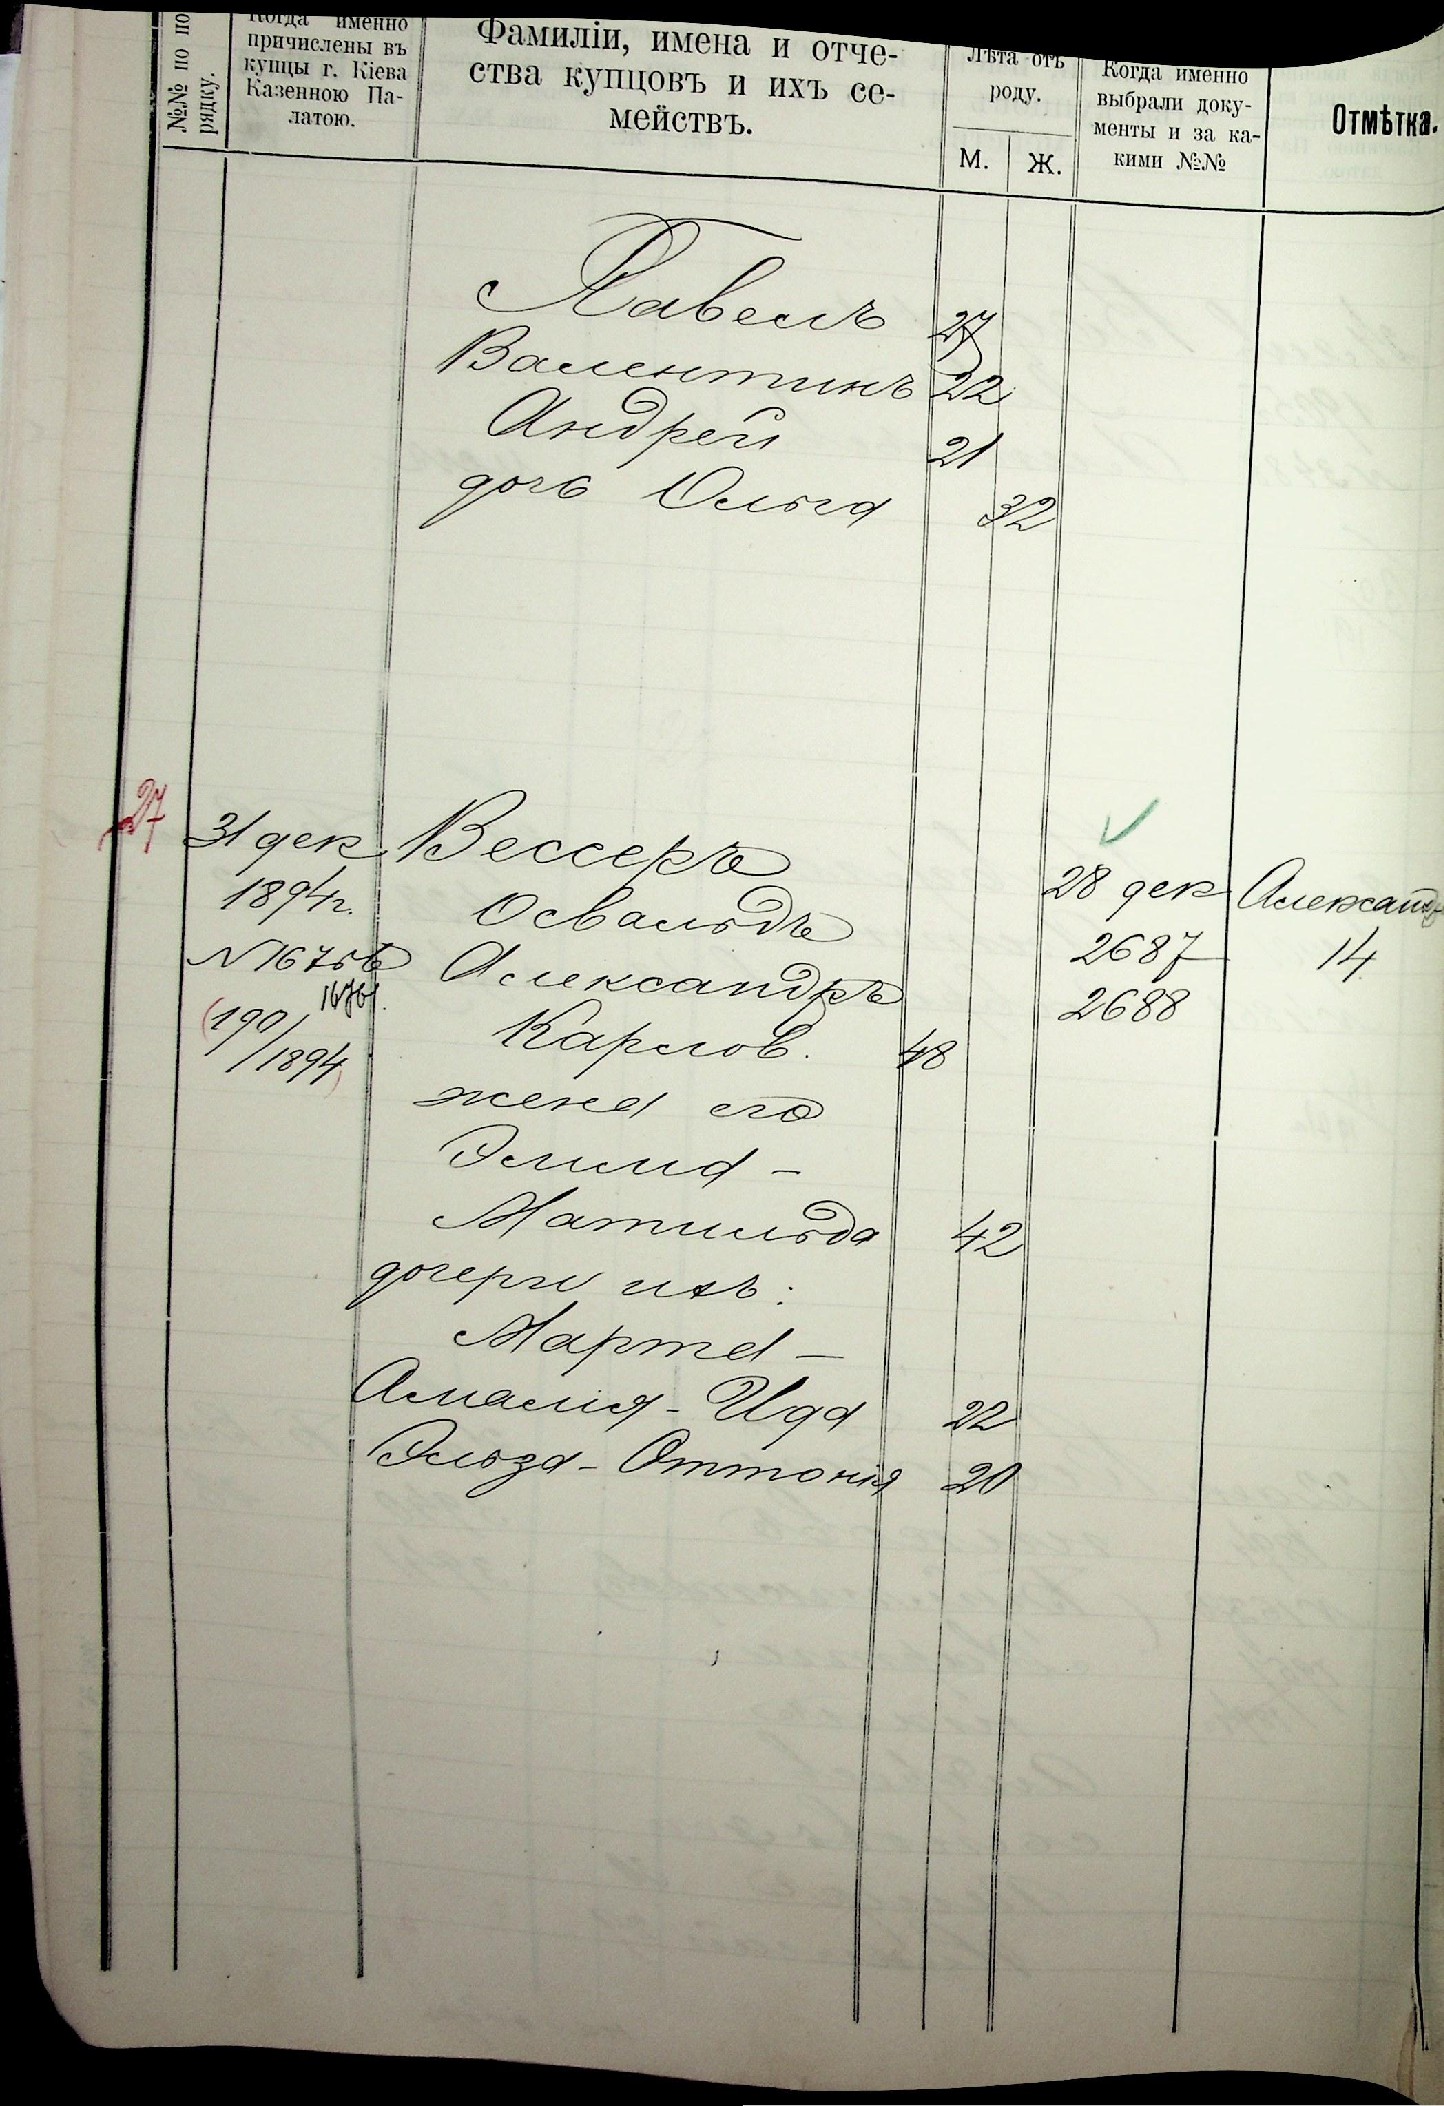 №№ по по-
рядку.
Когда именно
причислены въ
купцы г. Кіева
Казенною Па-
латою.
Фамиліи, имена и отче-
ства купцовъ и ихъ се-
мействъ.
Лѣта отъ
роду.
М.
Ж.
Когда именно
выбрали доку-
менты и за ка-
кими №№
Отмѣтка.
Павелъ 27
Валентинъ 22
Андрей 21
дочь Ольга 32
27
31 дек
1894 г.
190/1894
Вессеръ
Освальдъ
Александръ
Карлов. 48
жена его
Эмилія -
Матильда 42
дочери ихъ:
Марта -
Амалія - Ида 22
Эльза - Оттонія 20
28 дек
2687
2688
14